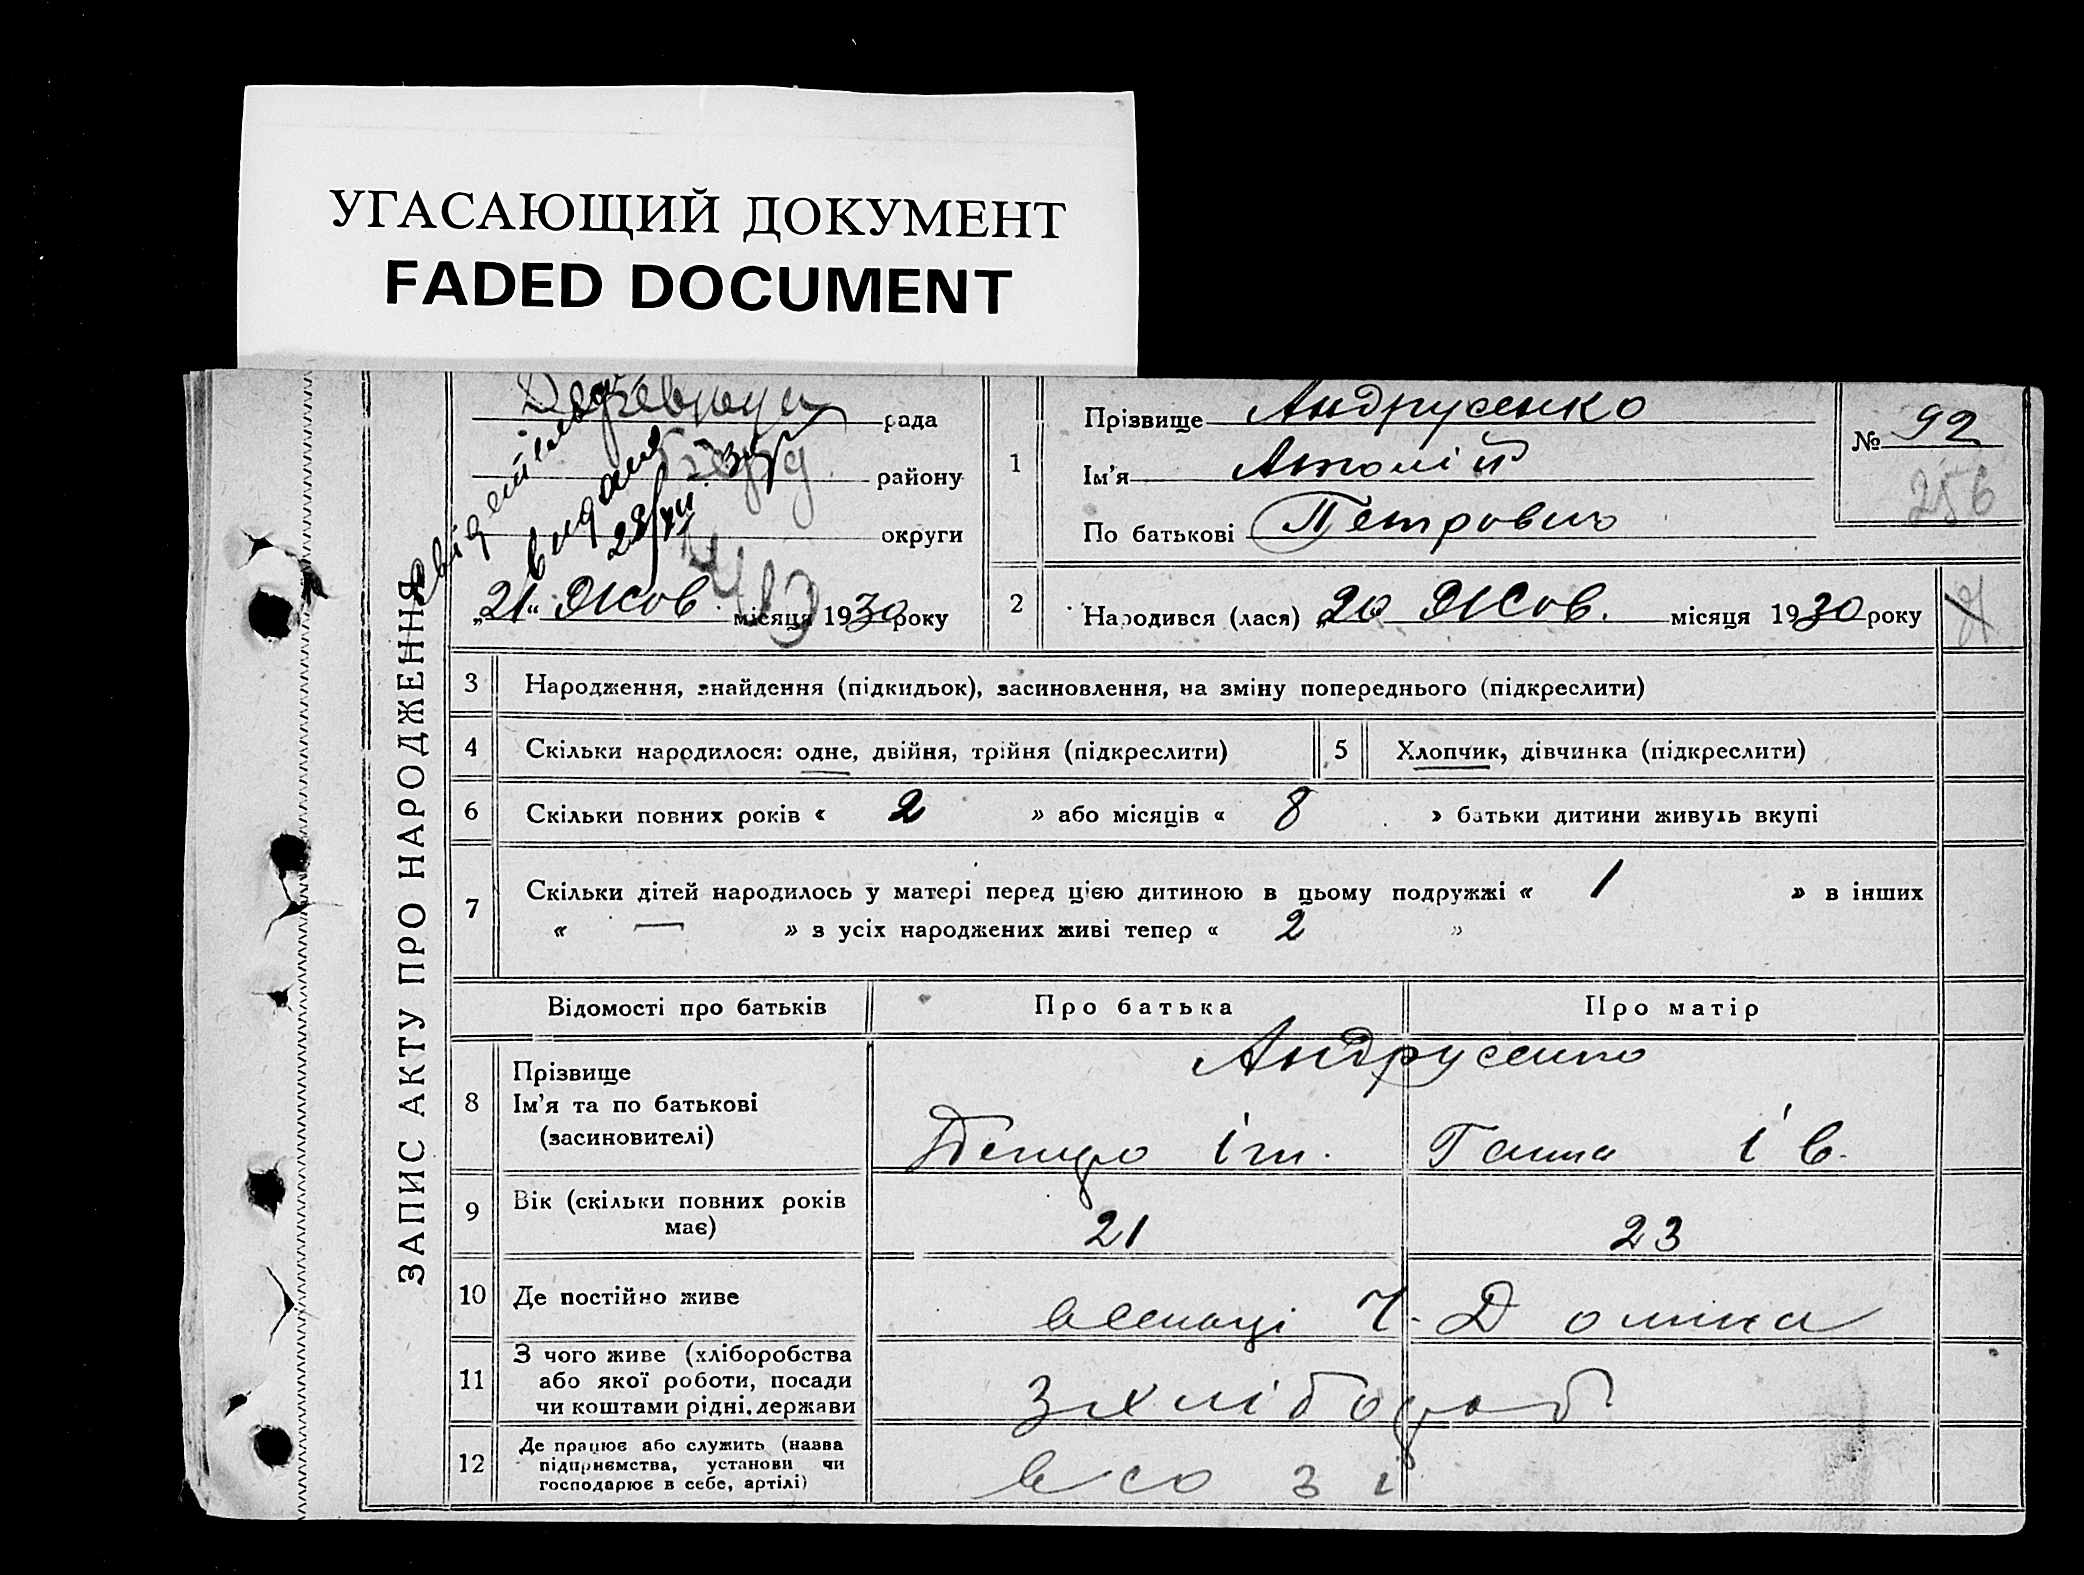 УГАСАЮЩИЙ ДОКУМЕНТ
FADED DOCUMENT
ЗАПИС АКТУ ПРО НАРОДЖЕННЯ
рада
району
округи
„21“ Жов. місяця 1930 року
видана
1 Прізвище Андрусенко
Ім’я Анатолій
По батькові Петрович
№ 92
256
2 Народився (лася) „20“ Жов. місяця 1930 року
3 Народження, знайдення (підкидьок), засиновлення, на зміну попереднього (підкреслити)
4 Скільки народилося: одне, двійня, трійня (підкреслити)
5 Хлопчик, дівчинка (підкреслити)
6 Скільки повних років « 2 » або місяців « 8 » батьки дитини живуть вкупі
7 Скільки дітей народилось у матері перед цією дитиною в цьому подружжі « 1 » в інших
« — » з усіх народжених живі тепер « 2 »
Відомості про батьків Про батька Про матір
Андрусенко
8 Прізвище
Ім’я та по батькові
(засиновителі)
Петро Іт. Ганна Ів.
9 Вік (скільки повних років
має)
21 23
10 Де постійно живе
11 З чого живе (хліборобства
або якої роботи, посади
чи коштами рідні, держави
З хлібороб
12 Де працює або служить (назва
підприємства, установи чи
господарює в себе, артілі)
в созі